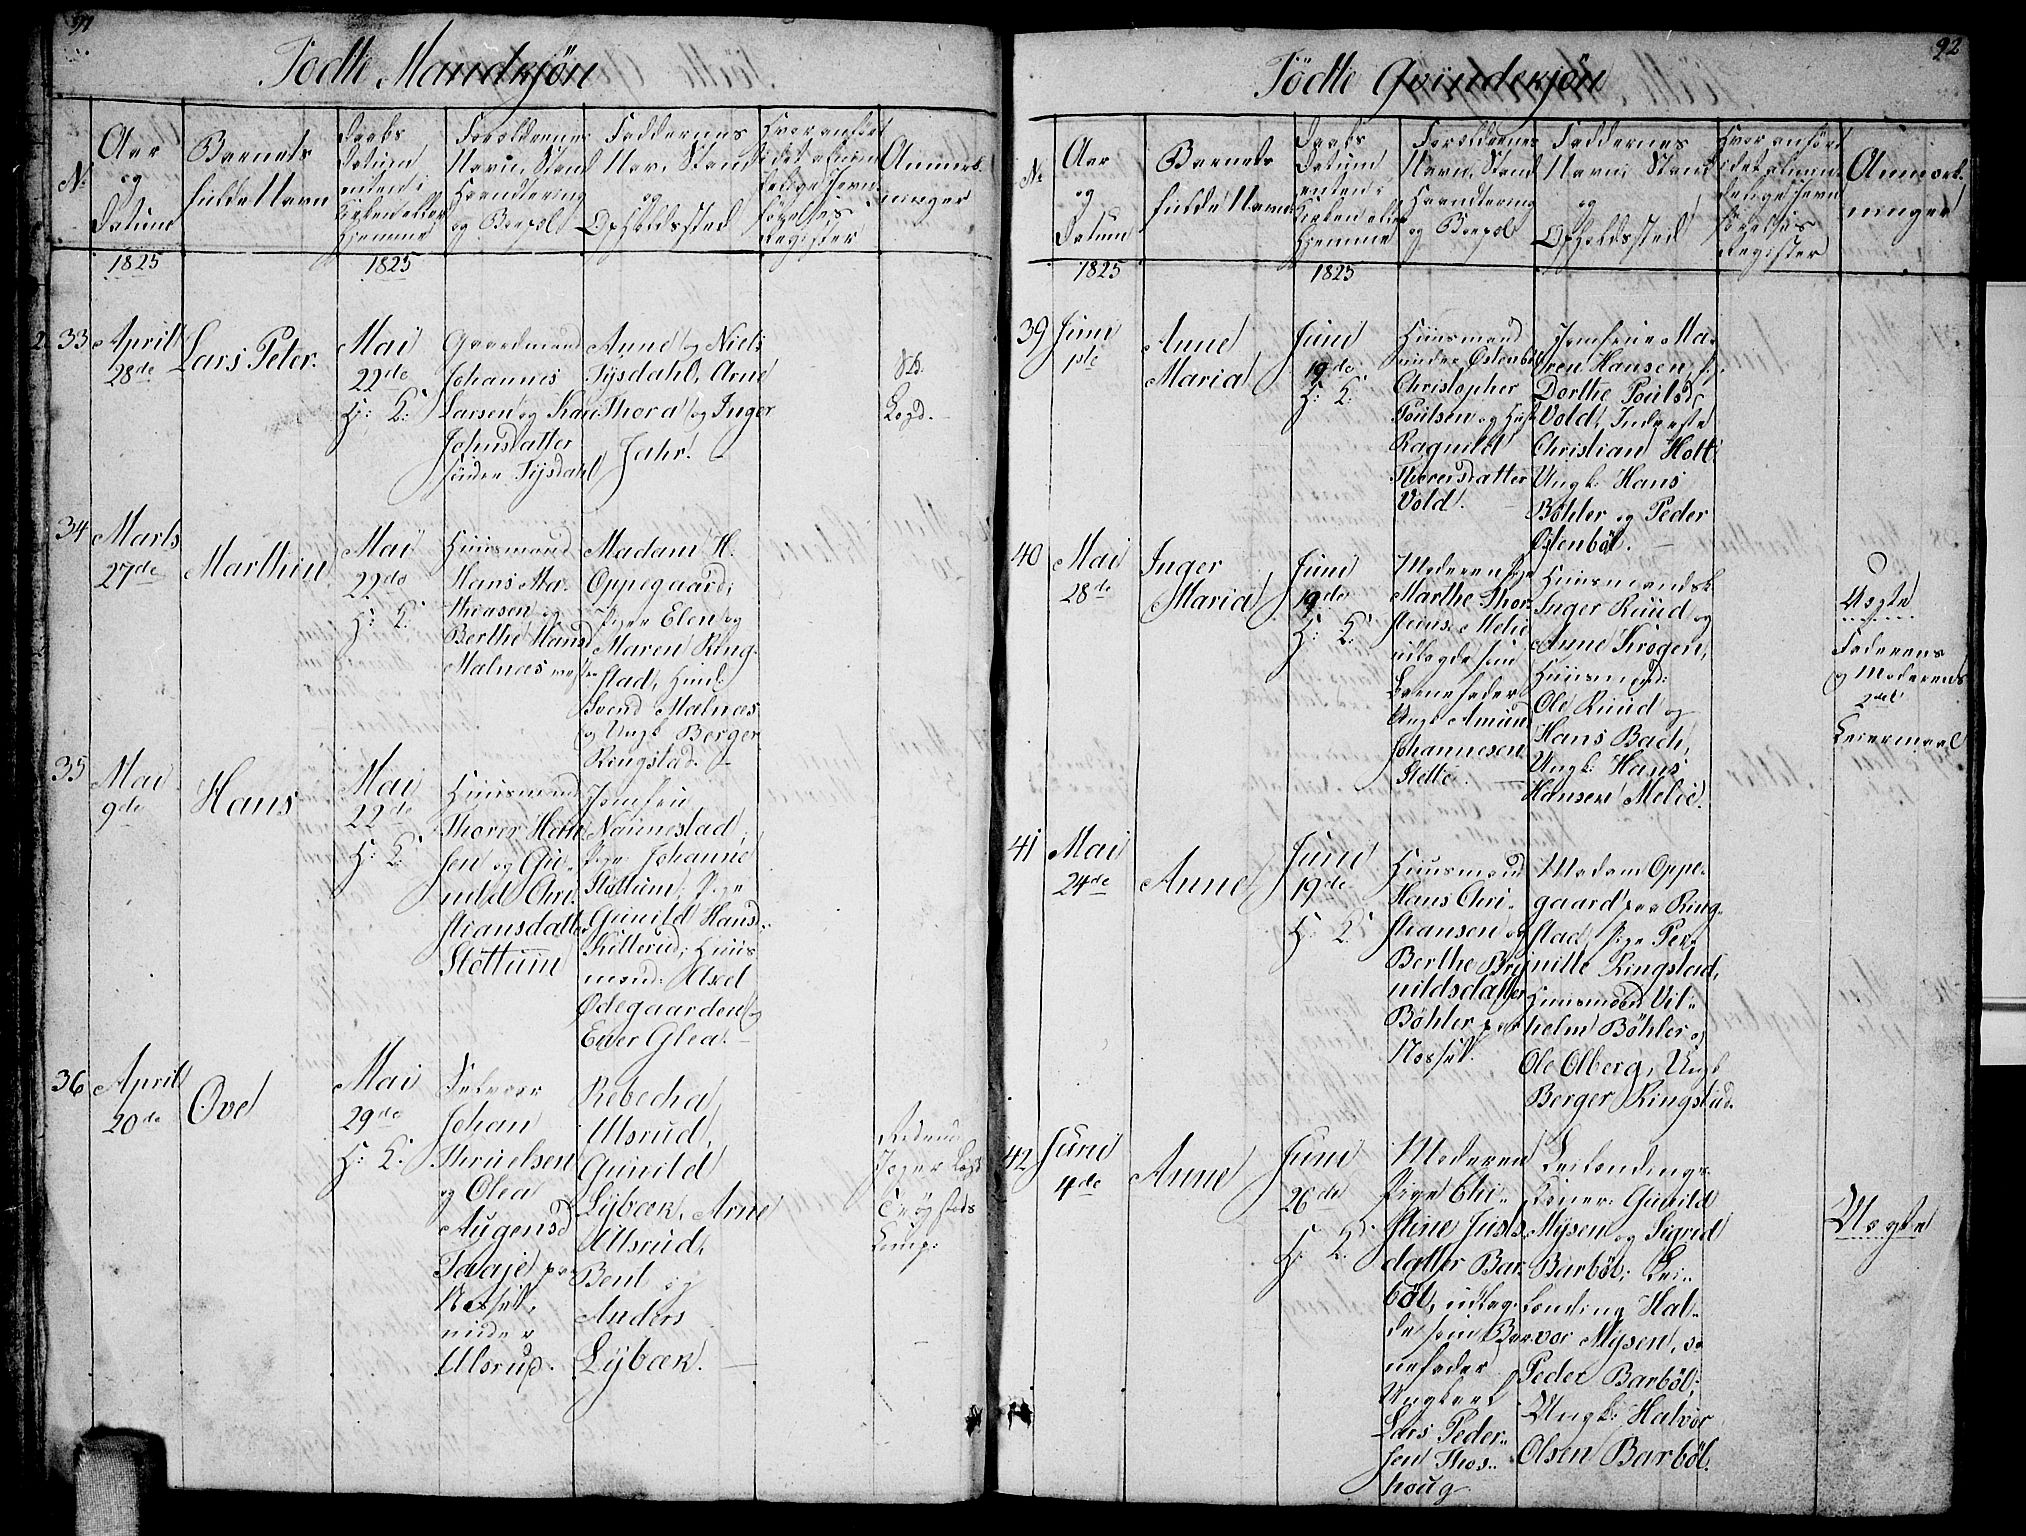 91
Födte Mandkjön
No
Aar
og
Datum
Barnets
fulde Navn
Daabs
Datum
enten i
Kirken eller
Hjemme
Forældrenes
Navn, Stand
Haandtering
og Boepæl
Faddernes
Navn, Stand
og
Opholdssted
Hvor anført
i det almin-
delige Jevn-
førelses
Register
Anmærk-
ninger
1825
1825
33
April
28de
Lars Peter.
Mai
22de
H: K:
Gaardmand
Johannes
Larsen og Kari
Johnsdatter
søndre Tysdahl
Anne og Niels
Tysdahl, Arne
Thora og Inger
Jahr.
34
Marts
27de
Marthin
Mai
22de
H: K:
Huusmand
Hans Ma-
thiasen og
Berthe Hansd
Malnæs
Madam H.
Oppegaard,
Pigen Elen og
Maren Ring-
stad, Huusm:
Svend Malnæs
og Ungk Berger
Ringstad.
35
Mai
9de
Hans
Mai
22de
H: K:
Huusmand
Thorer Han-
sen og Gu-
nild Chri-
stiansdatter
Slettum
Jomfru
Naunestad,
Pige Johanne
Slettum, Pige
Gunild Hansd.
Kitterud, Huus
mænd: Axel
Ødegaarden og
Ever Glea.
36
April
20de
Ove
Mai
29de
H: K:
Johan
Thruelsen
og Olea
Augensd
Taraje paa
under
Ulsrud.
Rebecha
Ulsrud,
Gunild
Lybæk, Arne
Ulsrud,
Bent og
Anders
Lybæk.
92
Födte Qvindekjön
No
Aar
og
Datum
Barnets
fulde Navn
Daabs
Datum
enten i
Kirken eller
Hjemme
Forældrenes
Navn, Stand
Haandtering
og Boepæl
Faddernes
Navn, Stand
og
Opholdssted
Hvor anført
i det almin-
delige Jevn-
førelses
Register
Anmærk-
ninger
1825
1825
39
Juni
1te
Anne
Maria
Juni
19de
H: K:
Huusmand
under Østenböl
Christopher
Poulsen og Hust
Ragnild
Thorersdatter
Vold.
Jomfrue Ma-
ren Hansen,
Dorthe Poulsd
Vold, Inderste
Christian Holt
Ungk: Hans
Böhler og Peder
Østenböl.
40
Mai
28de
Inger
Maria
Juni
19de
H: K:
Moderen Pige
Marthe Thor-
steins. Melie
udlagde som
Barnefader
Ungk Amun
Johannesen
Slette.
Huusmandsk
Inger Ruud og
Anne Krogen,
Huusmænd:
Ole Ruud og
Hans Bach,
Ungk: Hans
Hansen Melie.
Uægte
Faderens
og Moderens
2det
Leiermaal
41
Mai
24de
Anne
Juni
19de
H: K:
Huusmand
Hans Chri-
stiansen og
Berthe Bry-
nildsdatter
Böhler paa
Madam Oppe-
gaard paa Ring-
stad, Pige Per-
nille Ringstad,
Huusmænd Vil-
helm Böhler og
Ole Olberg, Ungk
Berger Ringstad.
42
Juni
4de
Anne
Juni
26de
H: K:
Moderen
Pige Chri-
stine Justs-
datter Bar-
böl, udlag-
de som Bar-
nefader
Ungkarl
Lars Peder-
sen Thos-
houg
Leilændings-
koner: Gunild
Mysen og Sigrid
Barböl; Lei-
lænding Hal-
vor Mysen,
Peder Barböl,
Ungk: Halvor
Olsen Barböl.
Uægte